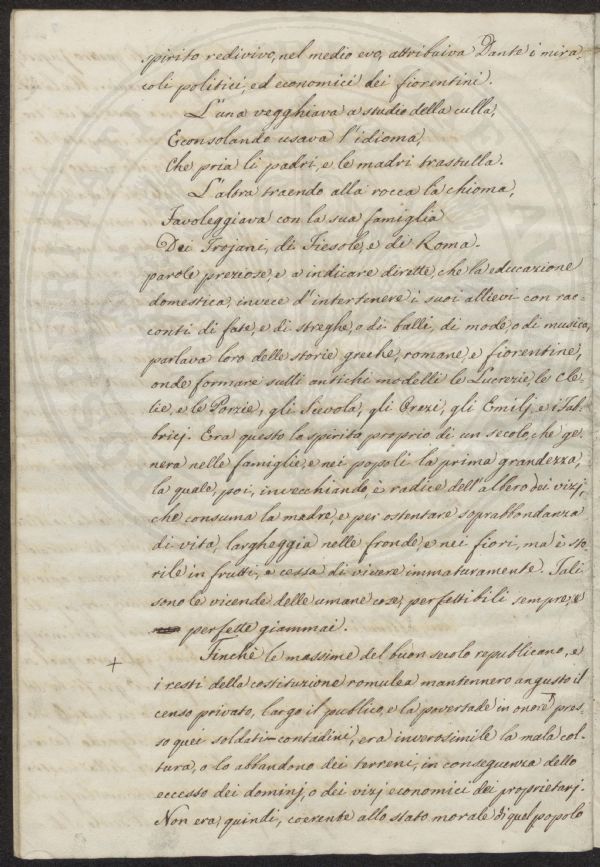 spirito redivivo, nel medio evo, attribuiva Dante i mira-
coli politici, ed economici dei fiorentini.
L'una vegghiava a studio della culla,
E consolando usava l'idioma,
Che pria li padri, e le madri trastulla.
L'altra traendo alla rocca la chioma,
Favoleggiava con la sua famiglia
Dei Trojani, di Fiesole, e di Roma.
parole preziose, e a indicare dirette, che la educazione
domestica, invece d'intertenere i suoi allievi con rac-
conti di fate, e di streghe, o di balli, di mode, o di musica,
parlava loro delle storie greche, romane, e fiorentine,
onde formare sulli antichi modelli le Lucrezie, le Cle-
lie, e le Porzie, gli Scevola, gli Orazi, gli Emilj, e i Fab-
bricj. Era questo lo spirito proprio di un secolo, che ge-
nera nelle famiglie, e nei popoli la prima grandezza,
la quale, poi, invecchiando, è radice dell'albero dei vizj,
che consuma la madre, e per ostentare soprabbondanza
di vita, largheggia nelle fronde, e nei fiori, ma è ste-
rile in frutti, e cessa di vivere immaturamente. Tali
sono le vicende delle umane cose, perfettibili sempre, e
perfette giammai.
+ Finchè le massime del buon secolo republicano, e
i resti della costituzione romulea mantennero angusto il
censo privato, largo il publico, e la povertade in onore pres-
so quei soldati-contadini, era inverosimile la mala col-
tura, o lo abbandono dei terreni, in conseguenza dello
eccesso dei dominj, o dei vizj economici dei proprietarj.
Non era, quindi, coerente allo stato morale di quel popolo